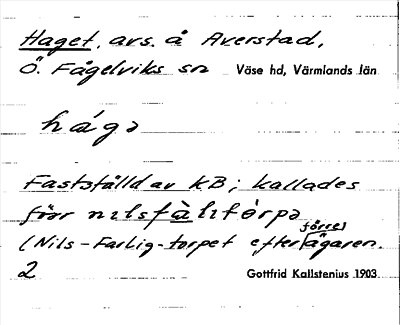 Haget, avs. å Averstad,
Ö. Fågelviks sn Väse hd, Värmlands län
hágə
Fastställd av KB; kallades
förr nılsfàlıfórpə
(Nils-Farlig-torpet efter förre ägaren.
2 Gottfrid Kallstenius 1903